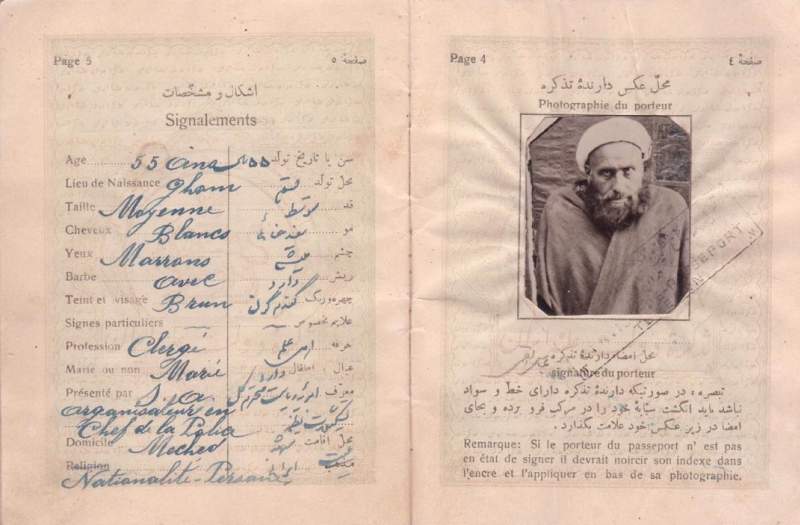 Page 5
صفحهٔ ٥
اشکال و مشخّصات
Signalements
Age 55 ans ٥٥ سن یا تاریخ تولد
Lieu de Naissance Ghom قم محلّ تولد
Taille Moyenne متوسط قد
Cheveux Blancs مو
Yeux Marrons میشی چشم
Barbe avec دارد ریش
Teint et visage Brun گندم گون چهره و رنگ
Signes particuliers علایم مخصوص
Profession Clergé اهل علم حرفه
Marié ou non Marié دارد عیال
Présenté par S. A معرّف
organisateur en
Chef de la
Domicile Meched مشهد محلّ اقامت
Religion
Nationalité-Persane ایران
Page 4
صفحهٔ ٤
محلّ عکس دارندهٔ تذکره
Photographie du porteur
محل امضاء دارندهٔ تذکره
signature du porteur
تبصره: در صورتیکه دارندهٔ تذکره دارای خط و سواد
نباشد باید انگشت سبّابهٔ خود را در مرکّب فرو برده و بجای
امضا در زیر عکس خود علامت بگذارد.
Remarque: Si le porteur du passeport n' est pas
en état de signer il devrait noircir son indexe dans
l'encre et l'appliquer en bas de sa photographie.